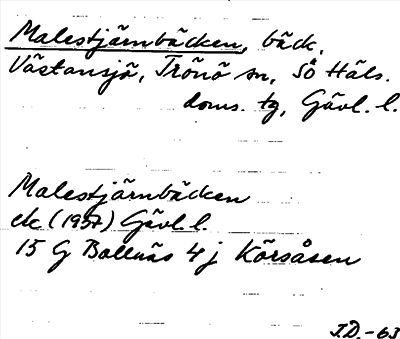 Malestjärnbäcken, bäck,
Västansjö, Trönö sn, Sö Häls.
doms. tg, Gävl. l.
Malestjärnbäcken
ek (1957) Gävl. l.
15 G Bollnäs 4 j Körsåsen
J.D.-63